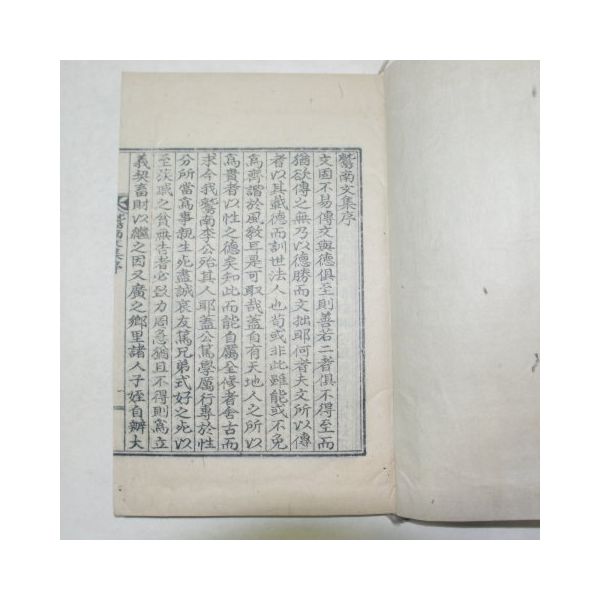 鷲南文集序
文固不易傳文與德俱至則善若二者俱不得至而
猶欲傳之無乃以德勝而文拙耶何者夫文所以傳
者以其載德而訓世法人也苟或非此雖能或不免
爲齊諧於風敎耳是可取哉蓋自有天地人之所以
爲貴者以性之德矣知此而能自厲全修者舍古而
求今我鷲南李公殆其人耶盖公篤學厲行專於性
分所當爲事親生死盡誠哀友篤兄弟式好之死以
至族戚之貧無告者必致力周急猶且不得則爲立
義契畜財以繼之因又廣之鄕里諸人子姪自辦大
鷲南文集序
一